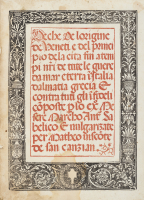 Deche de lorigine
de Veneti e del princi
pio de la cita fin a tem
pi nr̃i de tute le guerre
da mar e terra ĩ Italia
dalmatia grecia &
contra tuti gli ĩfedeli
cõposte p lo exͭ Mẽ
sere Marcho Ant Sa
belico & vulgarizate
per Matheo biscote
de san canzian